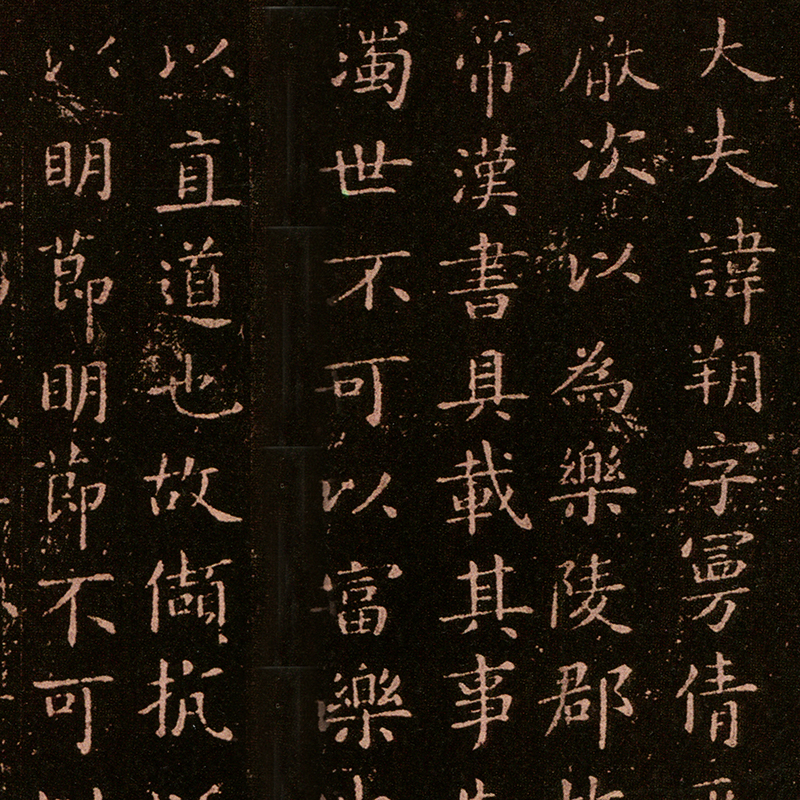 大夫諱朔字曼倩
厥次以為樂陵郡
帝漢書具載其事
濁世不可以富樂
以直道也故頡抗
以明節明節不可